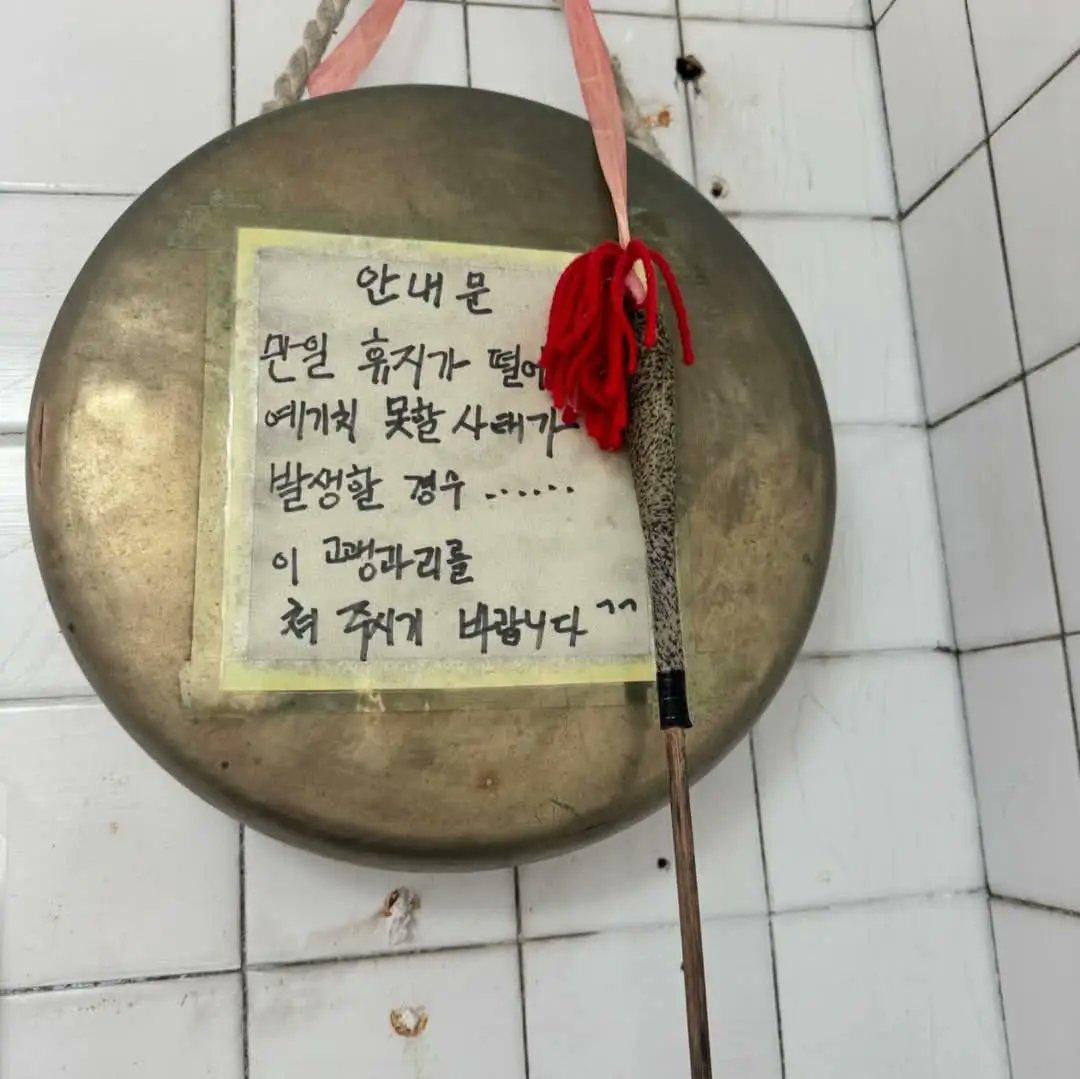 안내문
만일 휴지가 떨어
예기치 못할 사태가
발생할 경우 ......
이 괭과리를
쳐 주시기 바랍니다 ^^